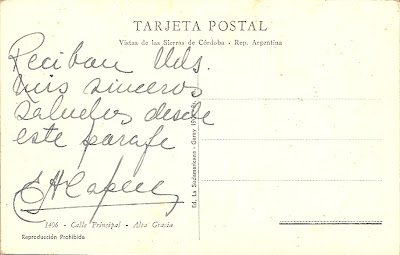 TARJETA POSTAL
Vistas de las Sierras de Córdoba - Rep. Argentina
Reciban Uds.
mis sinceros
saludos desde
este paraje
1406 - Calle Principal - Alta Gracia
Reproducción Prohibida
Ed. La Sudamericana - Geray